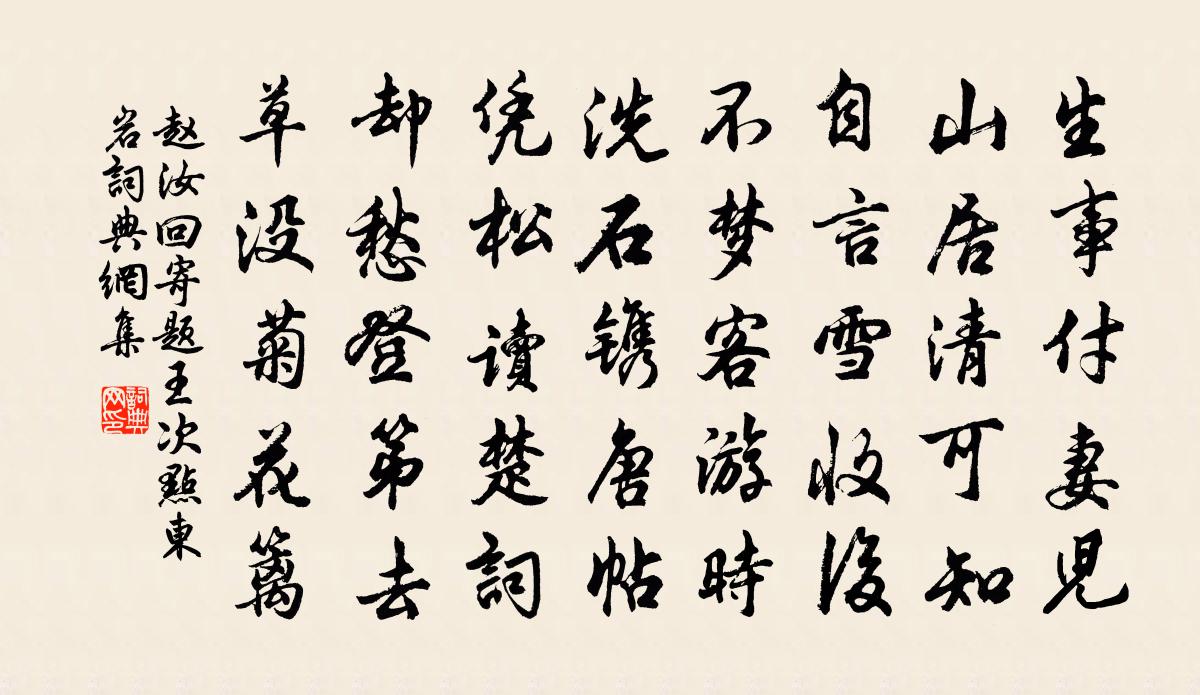 生事付妻児
山居清可知
自言雪收後
不梦客游時
洗石镌唐帖
凭松讀楚詞
却愁登第去
草没菊花篱
赵汝回寄题王次點東
岩詞典網集
詞典网印